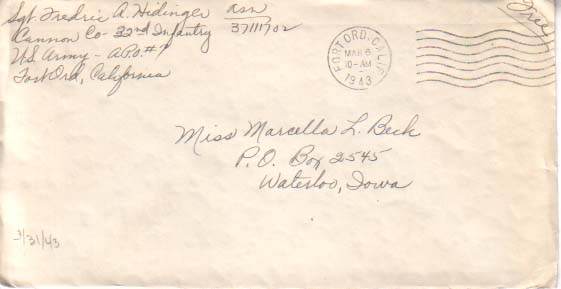 Sgt Fredric A. Hidinger asn
Cannon Co- 32nd Infantry 37111702
US Army - A.P.O. #7
Fort Ord, California
Free
FORT ORD, CALIF.
MAR 6
10-AM
1943
Miss Marcella L. Beck
P.O. Box 2545
Waterloo, Iowa
3/31/43